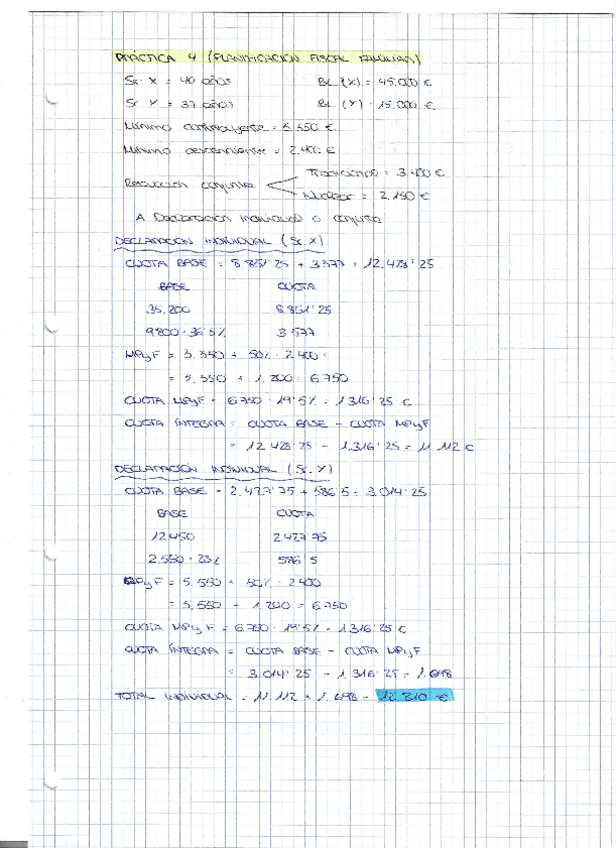 PRÁCTICA 4 (PLANIFICACIÓN FISCAL FAMILIAR)
Sr. X = 40 años BL (X) = 45.000 €
Sr Y = 37 años BL (Y) = 15.000 €
Mínimo contribuyente = 5.550 €
Mínimo descendiente = 2.400 €
Tradicional = 3.400 €
Reducción conjunta
Nuclear = 2.150 €
A Declaración individual o conjunta
DECLARACIÓN INDIVIDUAL (Sr. X)
CUOTA BASE = 8.851'25 + 3577 = 12.428'25
BASE CUOTA
35.200 8.851'25
9800 · 36'5% 3.577
MPyF = 5.550 + 50% · 2.400 =
= 5.550 + 1.200 = 6750
CUOTA MPyF = 6750 · 19'5% = 1.316'25 €
CUOTA ÍNTEGRA = CUOTA BASE - CUOTA MPyF
= 12.428'25 - 1.316'25 = 11.112 €
DECLARACIÓN INDIVIDUAL (Sr. Y)
CUOTA BASE = 2.427'75 + 586'5 = 3.014'25
BASE CUOTA
12.450 2.427'75
2.550 · 23% 586'5
MPyF = 5.550 + 50% · 2400
= 5.550 + 1.200 = 6750
CUOTA MPyF = 6750 · 19'5% = 1.316'25 €
CUOTA ÍNTEGRA = CUOTA BASE - CUOTA MPyF
= 3.014'25 - 1.316'25 = 1.698
TOTAL INDIVIDUAL = 11.112 + 1.698 = 12.810 €